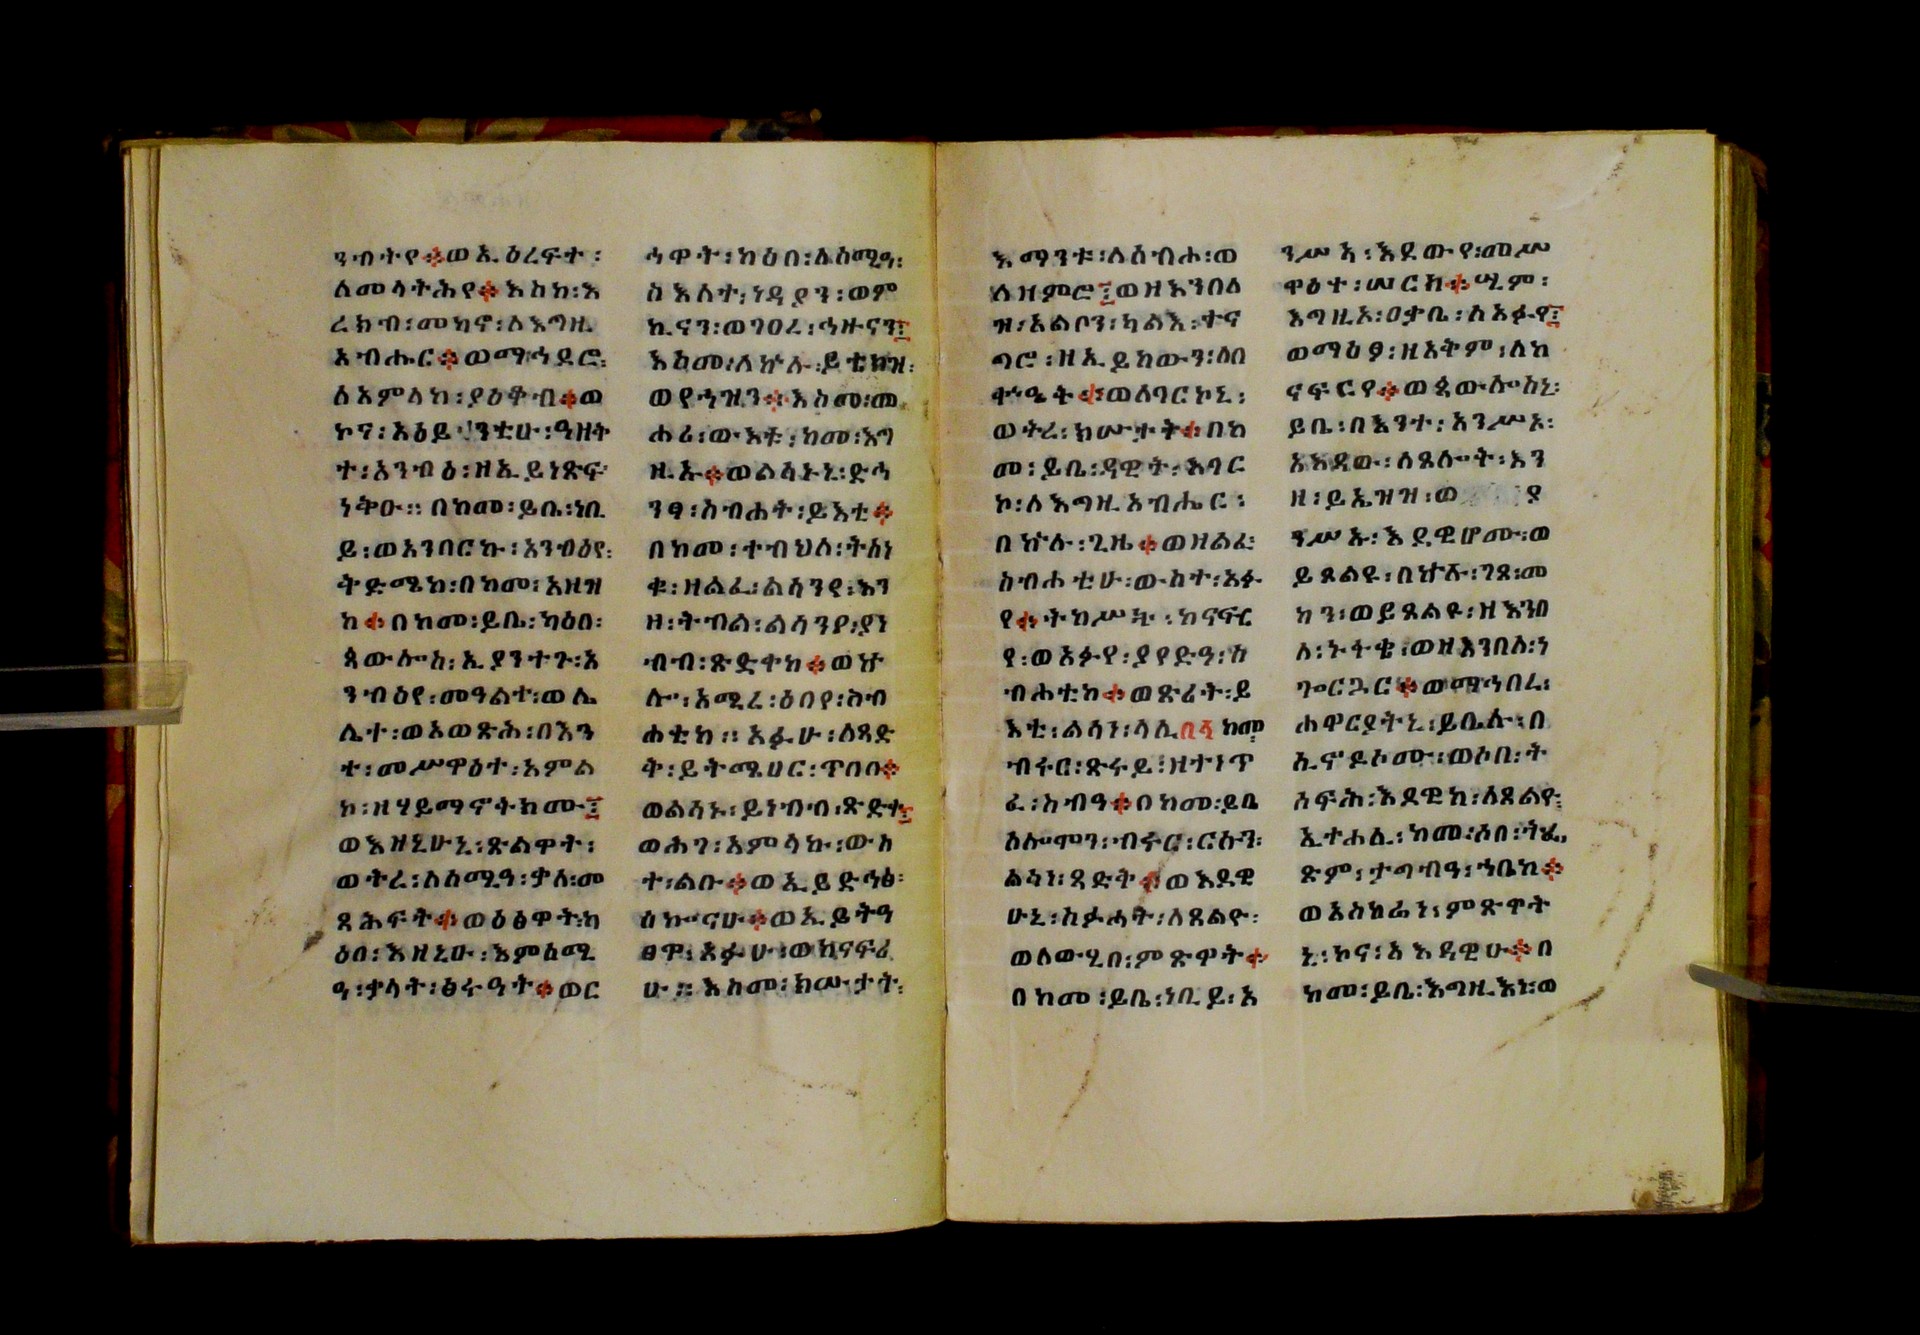 ንብትየ፨ወኢዕረፍተ፡
ለመላትሕየ፨እስከ፡እ
ረክብ፡መካኖ፡ለእግዚ
አብሔር፨ወማኅደሮ፡
ለአምላከ፡ያዕቆብ፨ወ
ኮና፡አዕይንቲሁ፡ዓዘቅ
ተ፡አንብዕ፡ዘኢይነጽፍ
ነቅዑ። በከመ፡ይቤ፡ነቢ
ይ፡ወአንበርኩ፡አንብዕየ፡
ቅድሜከ፡በከመ፡አዘዝ
ከ፨በከመ፡ይቤ፡ካዕበ፡
ጳውሎስ፡ኢያንተጉ፡አ
ንብዕየ፡መዓልተ፡ወሌ
ሊተ፡ወአወጽሕ፡በእን
ተ፡መሥዋዕተ፡አምል
ኮ፡ዘሃይማኖትክሙ፤
ወእዘኒሁኒ፡ጽልዋት፡
ወትረ፡ለሰሚዓ፡ቃለ፡መ
ጻሕፍት፨ወዕፅዋት፡ካ
ዕበ፡እዘኒሁ፡እምሰሚ
ዓ፡ቃላት፡ፅሩዓት፨ወር
ሓዋት፡ከዕበ፡ለሰሚዓ፡
ስእለተ፡ነዳያን፡ወም
ኪናን፡ወገዐረ፡ኅዙናን፤
እስመ፡ለኵሉ፡ይቴክዝ፡
ወየኅዝን፨እስመ፡መ
ሐሪ፡ውእቱ፡ከመ፡እግ
ዚኡ፨ወልሳኑኒ፡ድሓ
ንፃ፡ስብሐት፡ይእቲ፨
በከመ፡ተብህለ፡ትሰነ
ቁ፡ዘልፈ፡ልሳንየ፡እን
ዘ፡ትብል፡ልሳንየ፡ያነ
ብብ፡ጽድቀከ፨ወኵ
ሎ፡አሚረ፡ዕበየ፡ስብ
ሐቲከ። አፉሁ፡ለጻድ
ቅ፡ይትሜሀር፡ጥበበ፨
ወልሳኑ፡ይነብብ፡ጽድቀ፤
ወሕገ፡አምላኩ፡ውስ
ተ፡ልቡ፨ወኢይድኅፅ፡
ሰኰናሁ፨ወኢይትዓ
ፀዋ፡አፉሁ፡ወከናፍሪ
ሁ። እስመ፡ክሡታት፡
እማንቱ፡ለስብሐ፡ወ
ለዘምሮ፤ወዘእንበለ
ዝ፡አልቦን፡ካልእ፡ተና
ግሮ፡ዘኢይከውን፡ለበ
ቍዔት፨ወለባርኮኒ፡
ወትረ፡ክሡታት፨በከ
መ፡ይቤ፡ዳዊት፡እባር
ኮ፡ለእግዚአብሔር፡
በኵሉ፡ጊዜ፨ወዘልፈ፡
ስብሐቲሁ፡ውስተ፡አፉ
የ፨ትከሥት፡ከናፍር
የ፡ወአፉየ፡ያየድዓ፡ስ
ብሐቲከ፨ወጽሪት፡ይ
እቲ፡ልሳነ፡ላሊበላ ከመ
ብሩር፡ጽሩይ፡ዘተነጥ
ፈ፡ስብዓ፨በከመ፡ይቤ
ሰሎሞን፡ብሩር፡ርሱን፡
ልሳነ፡ጻድቅ፨ወእደዊ
ሁኒ፡ስፉሓት፡ለጸልዮ፡
ወለውሂበ፡ምጽዋት፨
በከመ፡ይቤ፡ነቢይ፡አ
ንሥኣ፡እደውየ፡መሥ
ዋዕተ፡ሠርክ፨ሢም፡
እግዚኦ፡ዐቃቤ፡ለአፉየ፤
ወማዕፆ፡ዘአቅም፡ለከ
ናፍርየ፨ወጳውሎስኒ፡
ይቤ፡በእንተ፡አንሥኦ፡
አእዳው፡ለጸሎት፡እን
ዘ፡ይኤዝዝ፡ወ ያ
ንሥኡ፡እደዊሆሙ፡ወ
ይጸልዩ፡በኵሉ፡ገጸ፡መ
ካን፡ወይጸልዩ፡ዘእንበ
ለ፡ኑፋቄ፡ወዘእንበለ፡ነ
ጐርጓር፨ወማኅበረ፡
ሐዋርያትኒ፡ይቤሉ፡በ
ኢኖዶኮሙ፡ወሶበ፡ት
ሰፍሕ፡እደዊከ፡ለጸልዮ፡
ኢተሐሊ፡ከመ፡ሰበ፡ትፌ
ጽም፡ታግብዓ፡ኀቤከ፨
ወእስከሬነ፡ምጽዋት
ኒ፡ኮና፡አእዳዊሁ፨በ
ከመ፡ይቤ፡እግዚእነ፡ወ